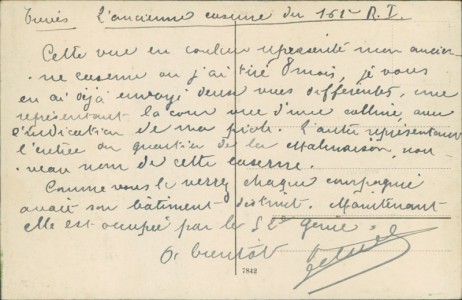 Trèves L'ancienne caserne du 161e R.I.
Cette vue en couleur représente mon ancien-
ne caserne où j'ai tiré 8 mois, je vous
en ai déjà envoyé deux vues différentes, une
représentant la cour vue d'une colline, avec
l'indication de ma piole. L'autre représentant
l'entrée au quartier de la Malmaison, nou-
veau nom de cette caserne.
Comme vous le verrez chaque compagnie
avait son bâtiment distinct. Maintenant
elle est occupée par le génie.
A bientôt
7842